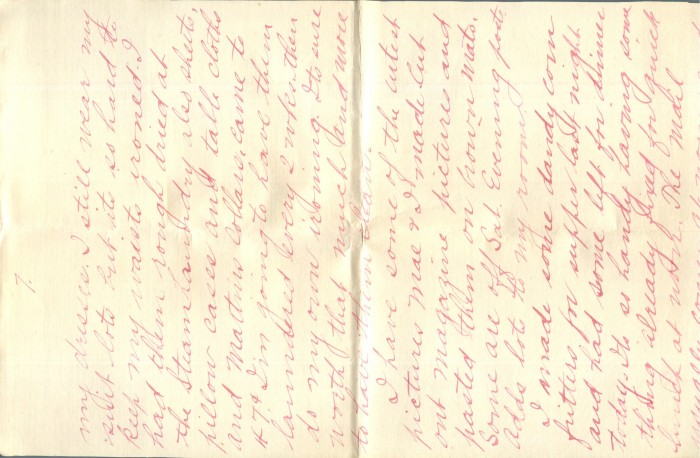 7.
my dresses. I still wear my
skirt lots but it is hard to
keep my waists ironed. I
had them rough dried at
the Steam laundry also sheets,
pillow cases and table cloths
and Martins collars. came to
47¢ I'm going to have them
laundered every 2 wks then
do my own ironing. Its sure
worth that much and more
to have them clean.
I have some of the cutest
pictures Mae & I made. Cut
out magazine pictures and
pasted them on brown mats.
Some are off Sat. Evening post.
adds lots to my room.
I made some dandy corn
fritters for supper last night
and had some left for dinner
today. Its so handy having some
thing already fixed for quick
lunch at noon. The